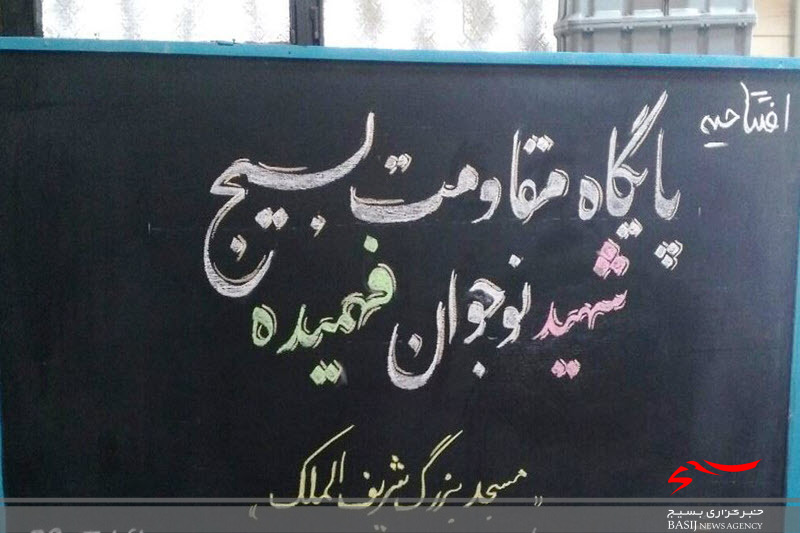 افتتاحیه
پایگاه مقاومت بسیج
شهید نوجوان فهمیده
«مسجد بزرگ شریف الملک»
بسیج
خبرگزاری بسیج
BASIJ NEWS AGENCY